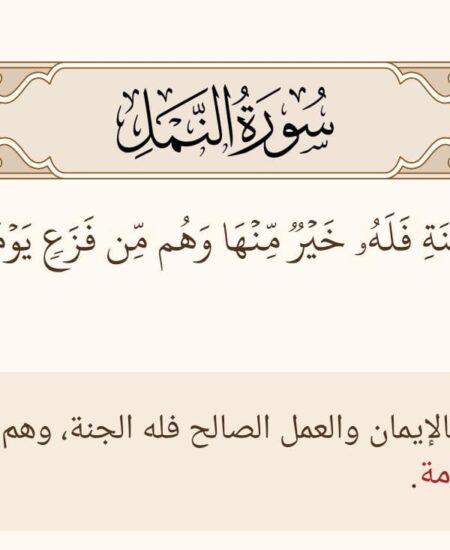 سُورَةُ النَّمْلِ
نَةِ فَلَهُۥ خَيْرٌ مِّنْهَا وَهُم مِّن فَزَعٍ يَوْمَ
بالإيمان والعمل الصالح فله الجنة، وهم
مة.